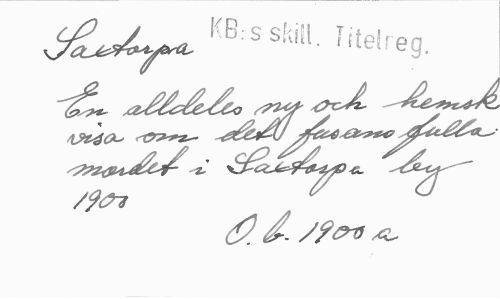 Saxtorpa
KB:s skill. Titelreg.
En alldeles ny och hemsk
visa om det fasansfulla
mordet i Saxtorpa by
1900
O. b. 1900 a